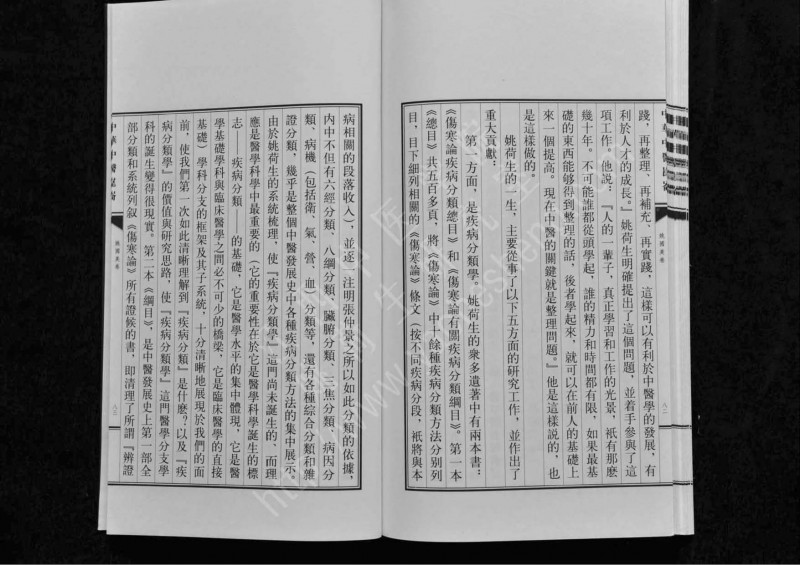 踐,再整理、再補充、再實踐,這樣可以有利於中醫學的發展,有
利於人才的成長。』姚荷生明確提出了這個問題,並着手參與了這
項工作。他説:『人的一輩子,真正學習和工作的光景,衹有那麽
幾十年。不可能誰都從頭學起,誰的精力和時間都有限,如果最基
礎的東西能够得到整理的話,後者學起來,就可以在前人的基礎上
來一個提高。現在中醫的關鍵就是整理問題。』他是這樣説的,也
是這樣做的。
姚荷生的一生,主要從事了以下五方面的研究工作,並作出了
重大貢獻:
第一方面,是疾病分類學。姚荷生的衆多遺著中有兩本書:
《傷寒論疾病分類總目》和《傷寒論有關疾病分類綱目》。第一本
《總目》共五百多頁,將《傷寒論》中十餘種疾病分類方法分别列
目,目下細列相關的《傷寒論》條文(按不同疾病分段,衹將與本
八二
病相關的段落收入),並逐一注明張仲景之所以如此分類的依據,
内中不但有六經分類、八綱分類、臟腑分類、三焦分類、病因分
類、病機(包括衛、氣、營、血)分類等,還有各種綜合分類和雜
證分類,幾乎是整個中醫發展史中各種疾病分類方法的集中展示。
由於姚荷生的系統梳理,使『疾病分類學』這門尚未誕生的、而理
應是醫學科學中最重要的(它的重要性在於它是醫學科學誕生的標
志——疾病分類——的基礎,它是醫學水平的集中體現,它是醫
學基礎學科與臨床醫學之間必不可少的橋梁,它是臨床醫學的直接
基礎)學科分支的框架及其子系統,十分清晰地展現於我們的面
前,使我們第一次如此清晰理解到『疾病分類』是什麽?以及『疾
病分類學』的價值與研究思路,使『疾病分類學』這門醫學分支學
科的誕生變得很現實。第二本《綱目》,是中醫發展史上第一部全
部分類和系統列叙《傷寒論》所有證候的書,即清理了所謂『辨證
八三